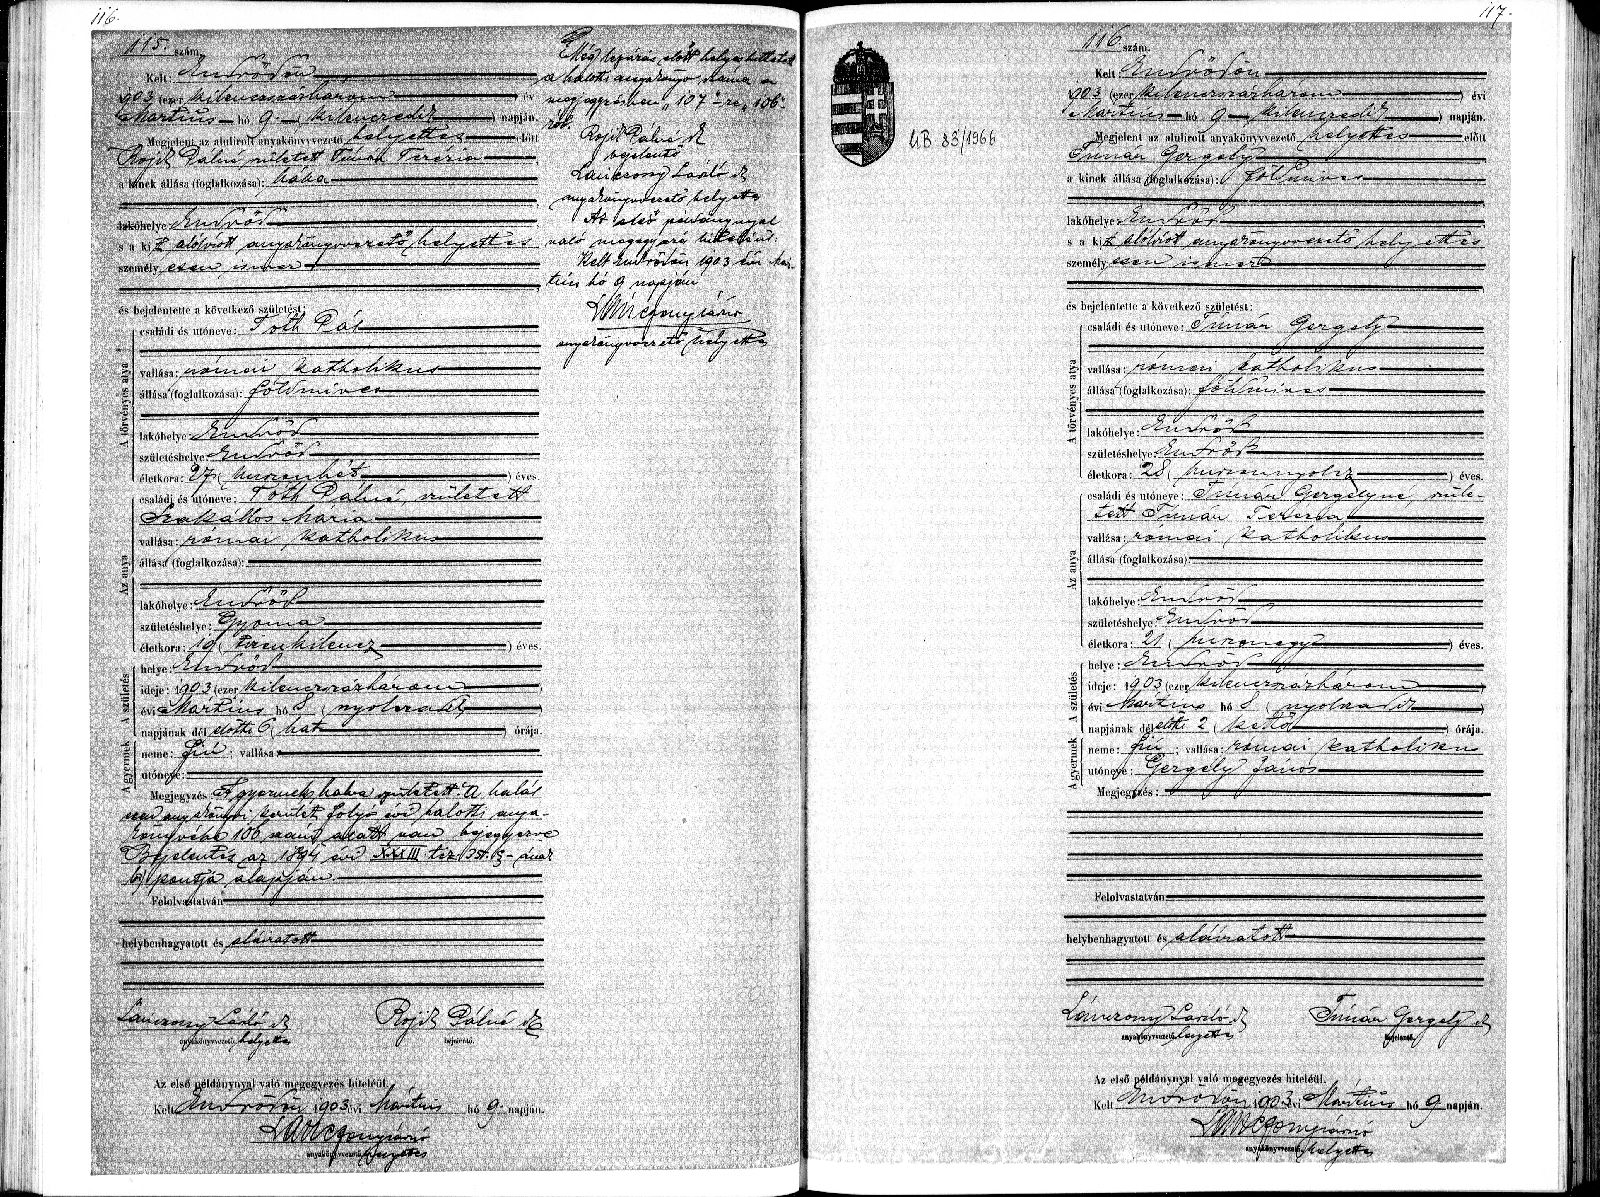 116.
115. szám.
Kelt Endrődön
903 (ezer kilenczszázhárom) év
Mártius hó 9 (kilenczedik) napján.
Megjelent az alulirott anyakönyvvezető helyettes előtt
Rojik Pálné született Tímár Terézia
a kinek állása (foglalkozása): bába
lakóhelye Endrőd
s a kit alólirott anyakönyvvezető helyettes
személyesen ismer
és bejelentette a következő születést:
A törvényes atya
családi és utóneve: Tóth Pál
vallása: római katholikus
állása (foglalkozása): földmives
lakóhelye: Endrőd
születéshelye: Endrőd
életkora: 27 (huszonhét) éves.
Az anya
családi és utóneve: Tóth Pálné, született
Szakállos Mária
vallása: római katholikus
állása (foglalkozása):
lakóhelye: Endrőd
születéshelye: Gyoma
életkora: 19 (tizenkilencz) éves.
A születés
helye: Endrőd
ideje: 1903 (ezer kilenczszázhárom
évi Mártius hó 8 (nyolczadik)
napjának dél előtti 6 (hat) órája.
A gyermek
neme: fiú; vallása:
utóneve:
Megjegyzés A gyermek halva született. A halál
eset anyakönyvi kerület folyó évi halotti anya-
könyvébe 106 szám alatt van bejegyezve
Bejelentés az 1894 évi XXXIII tcz.
b) pontja alapján.
Felolvastatván
helybenhagyatott és aláiratott
Lánczony László sk Rojik Pálné sk
anyakönyvvezető helyettes bejelentő.
Az első példánynyal való megegyezés hiteléül.
Kelt Endrődön 1903 évi Mártius hó 9. napján.
anyakönyvvezető helyettes
Még lejárás előtt helyesbittetett
a halotti anyakönyvi száma a
megjegyzésben „107"-ről „106"-
ról.
Rojik Pálné sk
bejelentő
Lánczony László sk
anyakönyvvezető helyettes
Az első példánynyal
való megegyezés hiteléül.
Kelt Endrődön 1903 évi Már-
tius hó 9 napján
anyakönyvvezető helyettes
UB 83/1966
117.
116 szám.
Kelt Endrődön
903 (ezer kilenczszázhárom) évi
Mártius hó 9 (kilenczedik) napján.
Megjelent az alulirott anyakönyvvezető helyettes előtt
Tímár Gergely
a kinek állása (foglalkozása): földmives
lakóhelye: Endrőd
s a kit alólirott anyakönyvvezető helyettes
személyesen ismer
és bejelentette a következő születést:
A törvényes atya
családi és utóneve: Tímár Gergely
vallása: római katholikus
állása (foglalkozása): földmives
lakóhelye: Endrőd
születéshelye: Endrőd
életkora: 28 (huszonnyolcz) éves.
Az anya
családi és utóneve: Tímár Gergelyné, szüle-
tett Tímár Terézia
vallása: római katholikus
állása (foglalkozása):
lakóhelye: Endrőd
születéshelye: Endrőd
életkora: 21 (huszonegy) éves.
A születés
helye: Endrőd
ideje: 1903 (ezer kilenczszázhárom
évi Mártius hó 8 (nyolczadik
napjának dél előtti 2 (kettő) órája.
A gyermek
neme: fiú; vallása: római katholikus
utóneve: Gergely János
Megjegyzés:
Felolvastatván
helybenhagyatott és aláiratott
Lánczony László sk Tímár Gergely sk
anyakönyvvezető helyettes bejelentő.
Az első példánynyal való megegyezés hiteléül.
Kelt Endrődön 1903 évi Mártius hó 9 napján.
anyakönyvvezető helyettes